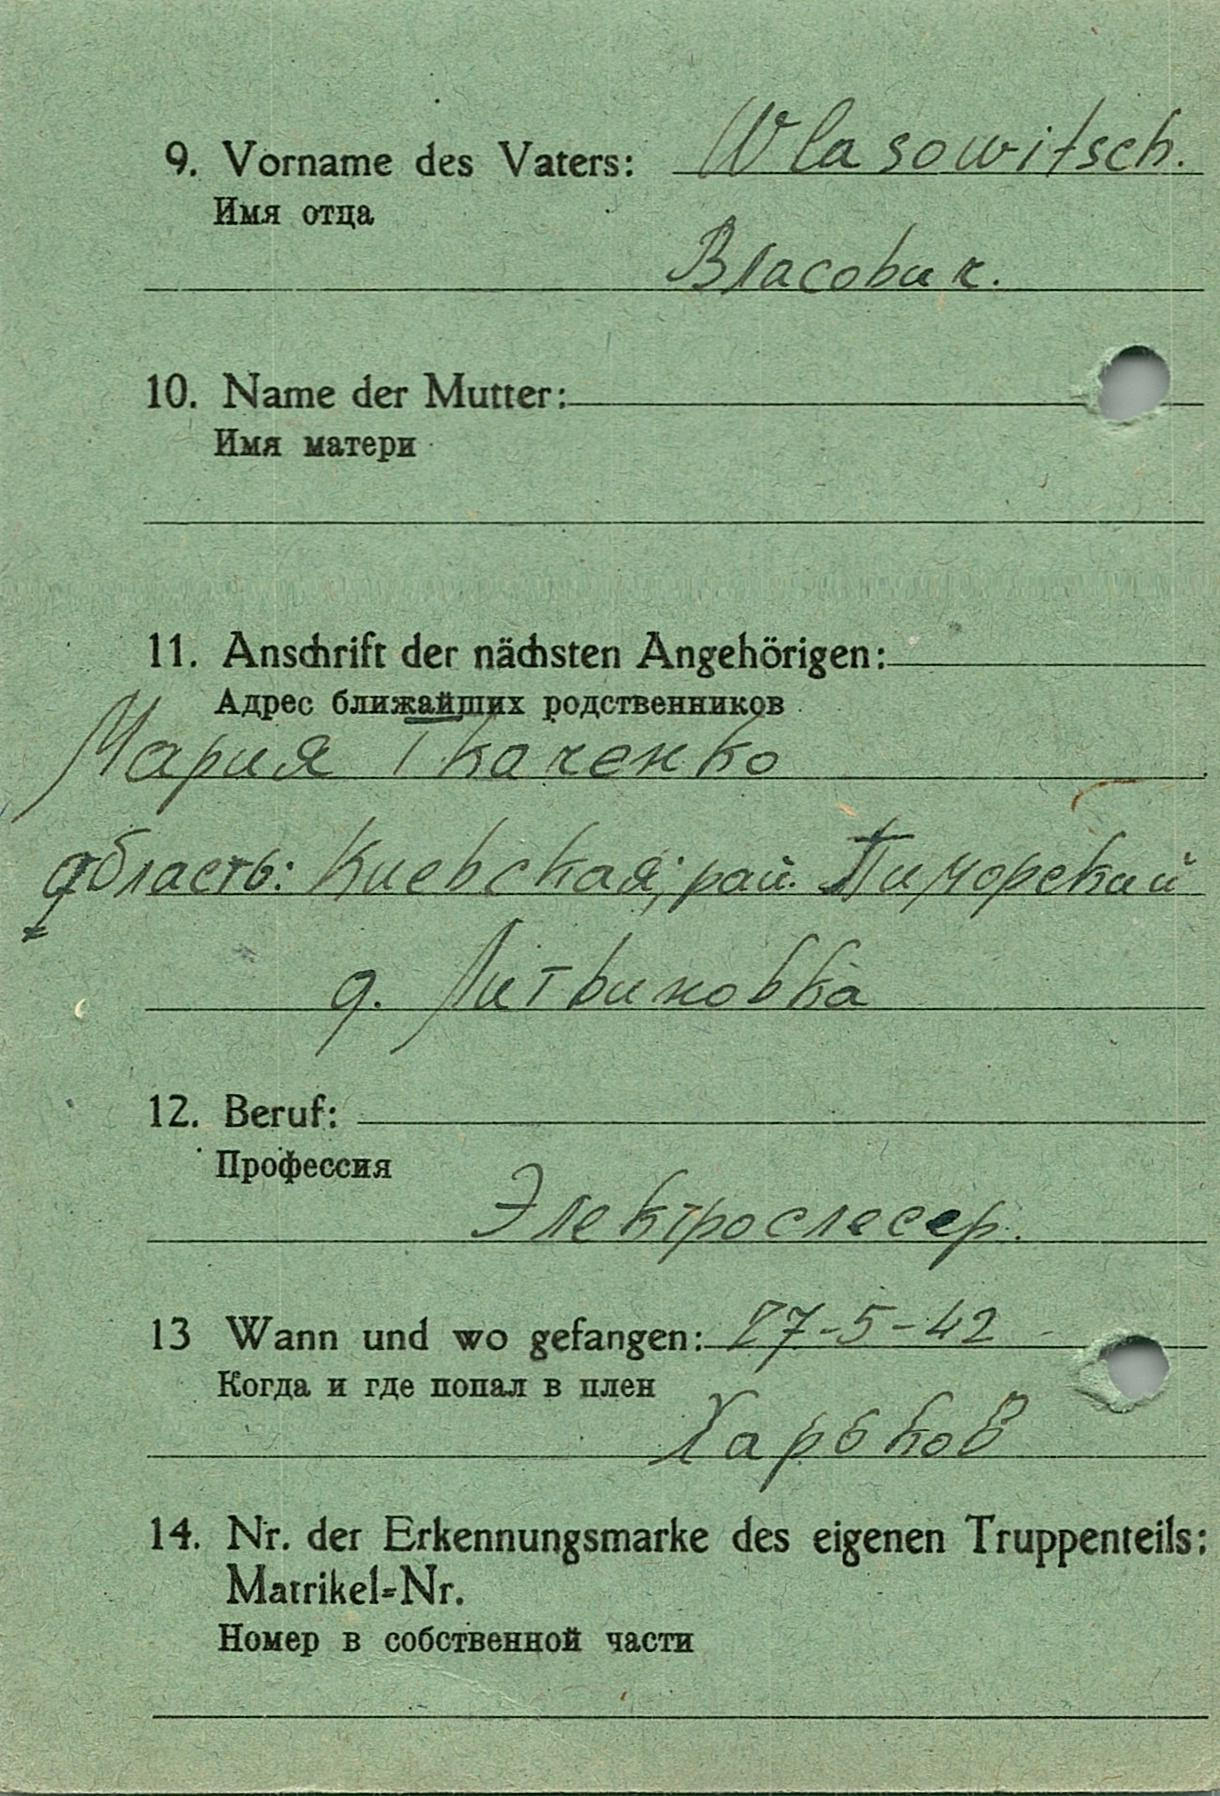 9. Vorname des Vaters: Wlasowitsch.
Имя отца
Власович.
10. Name der Mutter:
Имя матери
11. Anschrift der nächsten Angehörigen:
Адрес ближайших родственников
Мария Ткаченко
область: Киевская; рай.
д. Литвиновка
12. Beruf:
Профессия
Электрослесер.
13 Wann und wo gefangen: 27-5-42
Когда и где попал в плен
Харьков
14. Nr. der Erkennungsmarke des eigenen Truppenteils:
Matrikel=Nr.
Номер в собственной части